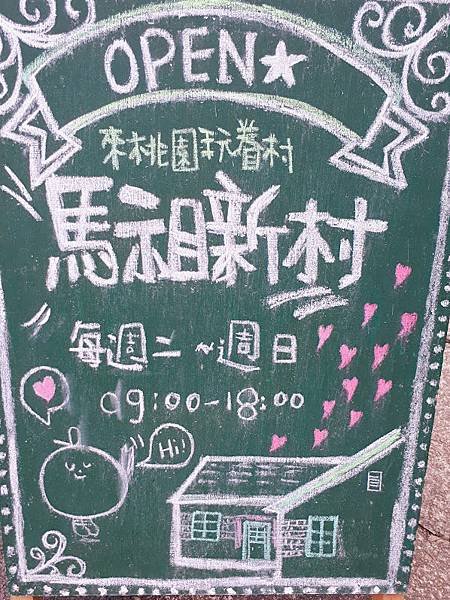 OPEN★
來桃園玩眷村
馬祖新村
每週二~週日
09:00-18:00
Hi!